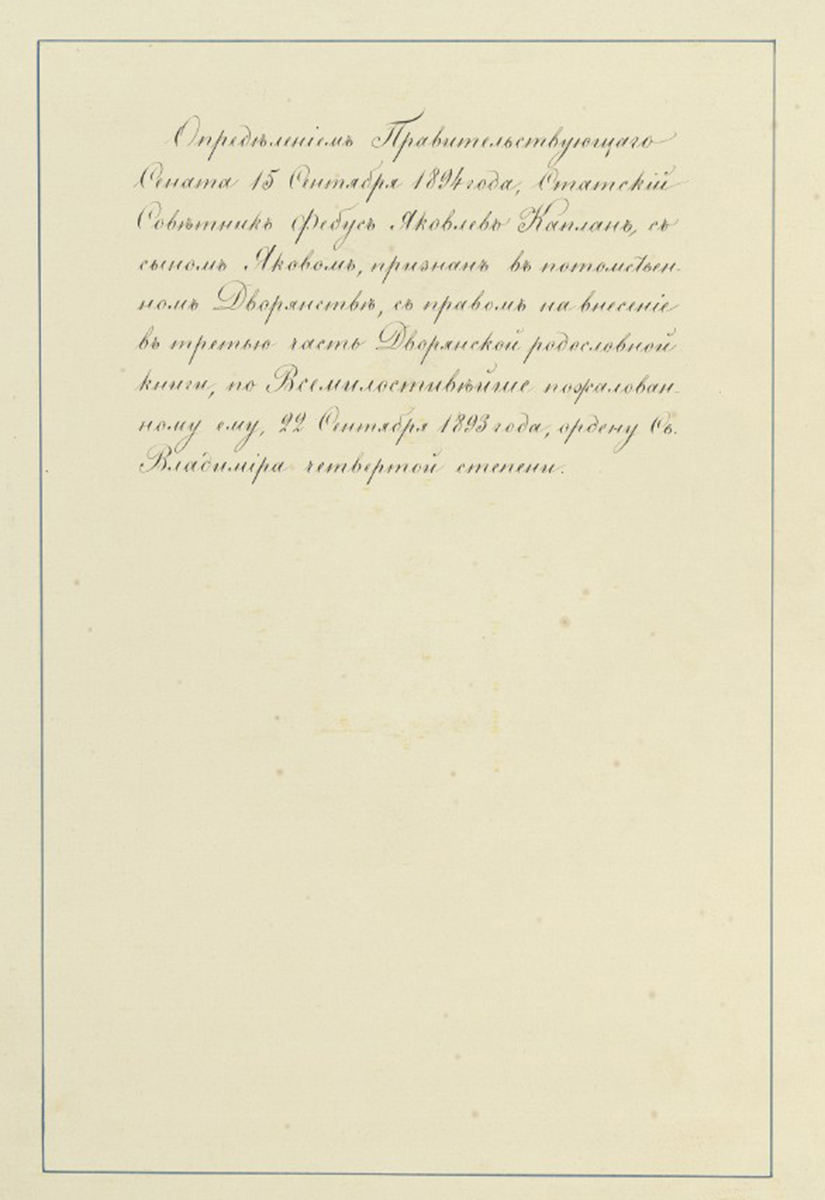 Опредѣленіемъ Правительствующаго
Сената 15 Сентября 1894 года, Статскій
Совѣтникъ Фебусъ Яковлевъ Капланъ, съ
сыномъ Яковомъ, признанъ въ потомствен-
номъ Дворянствѣ, съ правомъ на внесеніе
въ третью часть Дворянской родословной
книги, по Всемилостивѣйше пожалован-
ному ему, 22 Сентября 1893 года, ордену Св.
Владиміра четвертой степени.